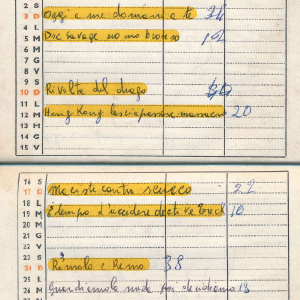 2 S
3 D Oggi a me domani a te 24
4 L
5 M Doc Savage uomo bronzo 15
6 M
7 G
8 V
9 S
10 D Rivolta del drago
11 L
12 M Hong Kong lasciapassare massacro 20
13 M
14 G
15 V
16 S
17 D Maciste contro sceicco 22
18 L
19 M È tempo d'uccidere detective Treck 10
20 M
21 G
22 V
23 S
24 D Romolo e Remo 38
25 L
26 M Guardiamola nuda poi decidiamo 13